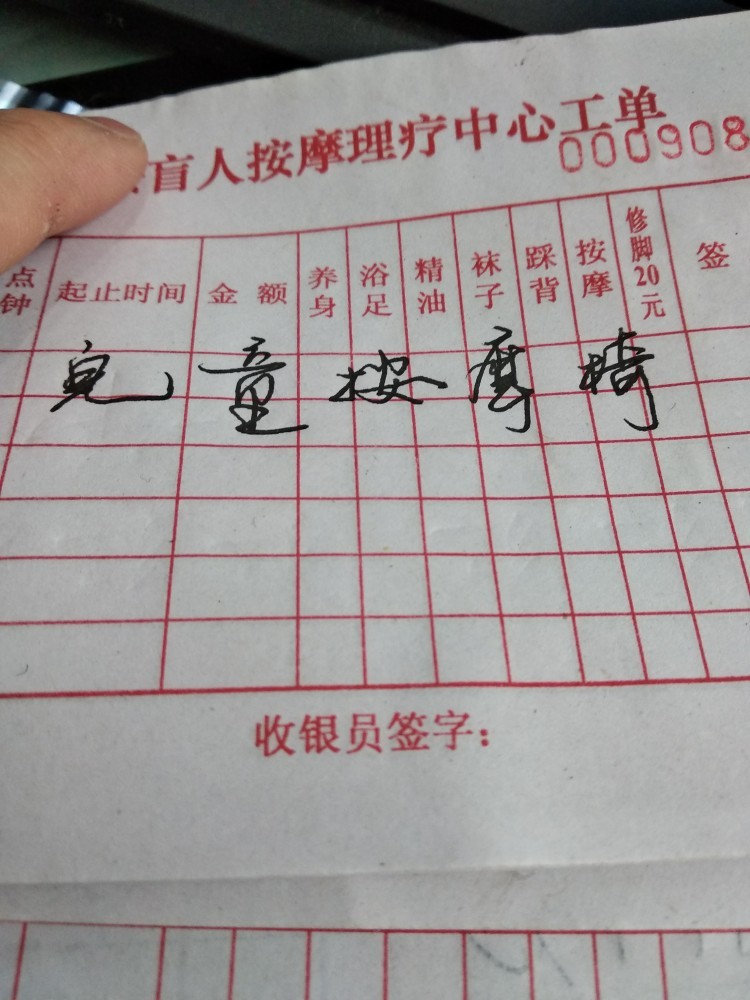 盲人按摩理疗中心工单
000908
点钟 起止时间 金额 养身 浴足 精油 袜子 踩背 按摩 修脚20元 签
兒童按摩椅
收银员签字：